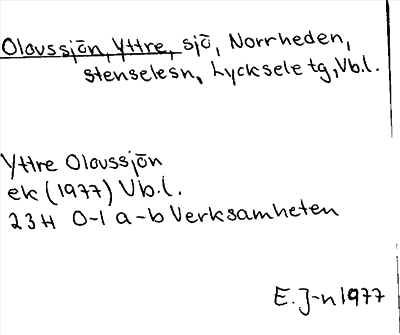 Olovssjōn, Yttre, sjō, Norrheden,
stenselesn, Lycksele tg, Vb.l.
Yttre Olovssjōn
ek (1977) Vb.l.
23H 0-1 a-b Verksamheten
E. J-n 1977